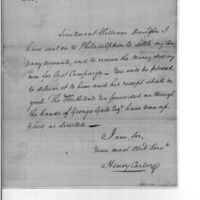 Lieutenant William Davidson I
have sent on to Philadelphia to settle my Com
pany Accounts, and to receive the Money due my
men for last Campaign — You will be pleased
to deliver it to him and his receipt shall be
good. The
the hands of George Gale Esqr. have been ap
plied as directed —
I am, Sir,
Your most Obdt. Servt.
Henry Carbery